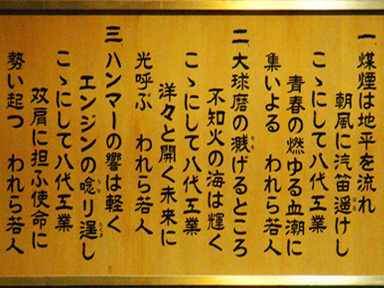 一、煤煙は地平を流れ
朝風に汽笛遥けし
こゝにして八代工業
青春の燃ゆる血潮に
集いよる われら若人
二、大球磨の濺げるところ
不知火の海は輝く
こゝにして八代工業
洋々と開く未来に
光呼ぶ われら若人
三、ハンマーの響は軽く
エンジンの唸り逞し
こゝにして八代工業
双肩に担ふ使命に
勢い起つ われら若人